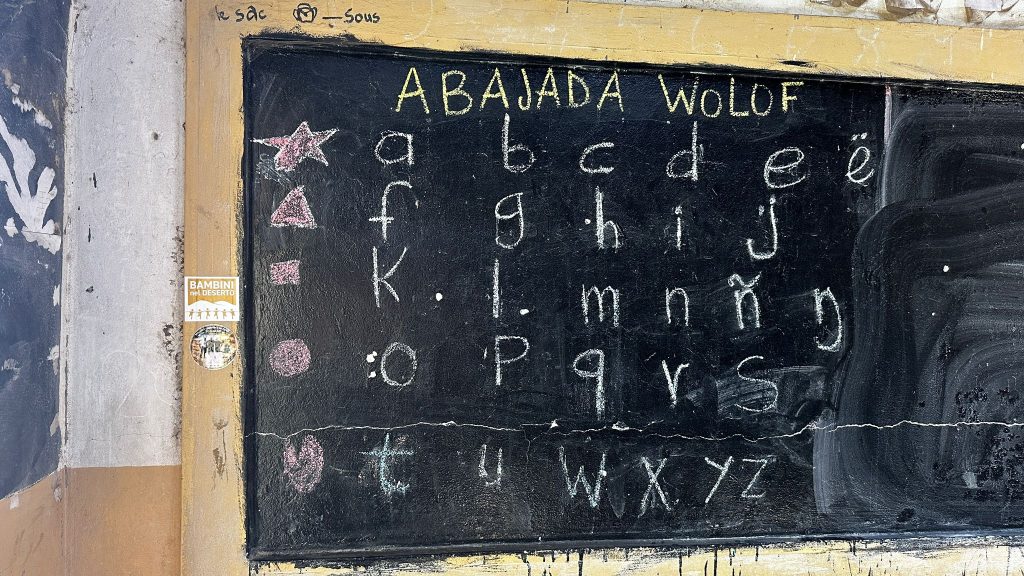 le sac — Sous
ABAJADA WOLOF
a b c d e ë
f g h i j
K l m n ñ ŋ
O P q r S
t u W X Y Z
BAMBINI
nel DESERTO